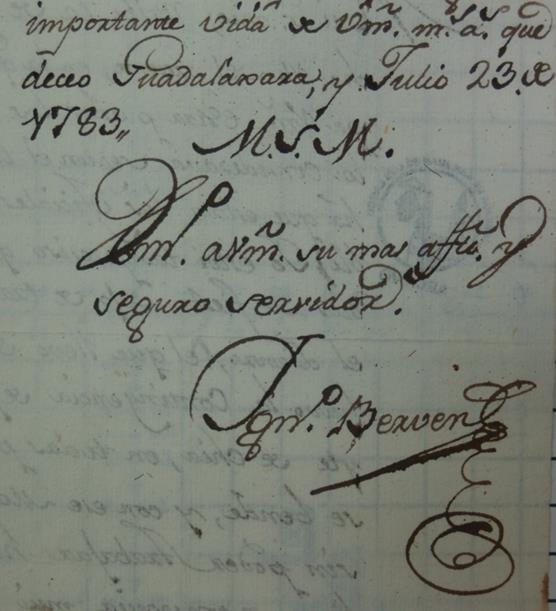 importante vida de Vm̃. m.ˢ a.ˢ que
deceo Guadalaxara, y Julio 23. de
1783,,
M. S. M.
B.ᵒ m. a Vm̃. su mas aff.ᵗᵒ y
seguro servidor.
Ygn.ᵒ Berven